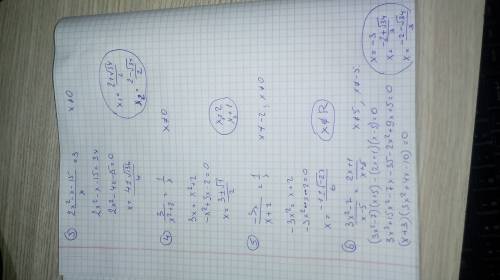 ③ (2x² - x - 15)/x = 3    x≠0
2x² - x - 15 = 3x
2x² - 4x - 15 = 0
x = (4 ± √34)/2
x₁ = (2+√34)/2
x₂ = (2-√34)/2
④ 3/(x²+2) = 1/x    x≠0
3x = x² + 2
-x² + 3x - 2 = 0
x = (3±√1)/2
x₁ = 2
x₂ = 1
⑤ -3x/(x+2) = 1/x    x≠-2, x≠0
-3x² = x + 2
-3x² - x - 2 = 0
x ∉ R
⑥ (3x²-7)/(x-5) = (2x+1)/(x+5)    x≠5, x≠-5
(3x²-7)(x+5) - (2x+1)(x-5) = 0
3x³ + 15x² - 7x - 35 - 2x² + 9x + 5 = 0
(x+3)(3x²+4x-10) = 0
x = -3
x = (-2+√34)/3
x = (-2-√34)/3